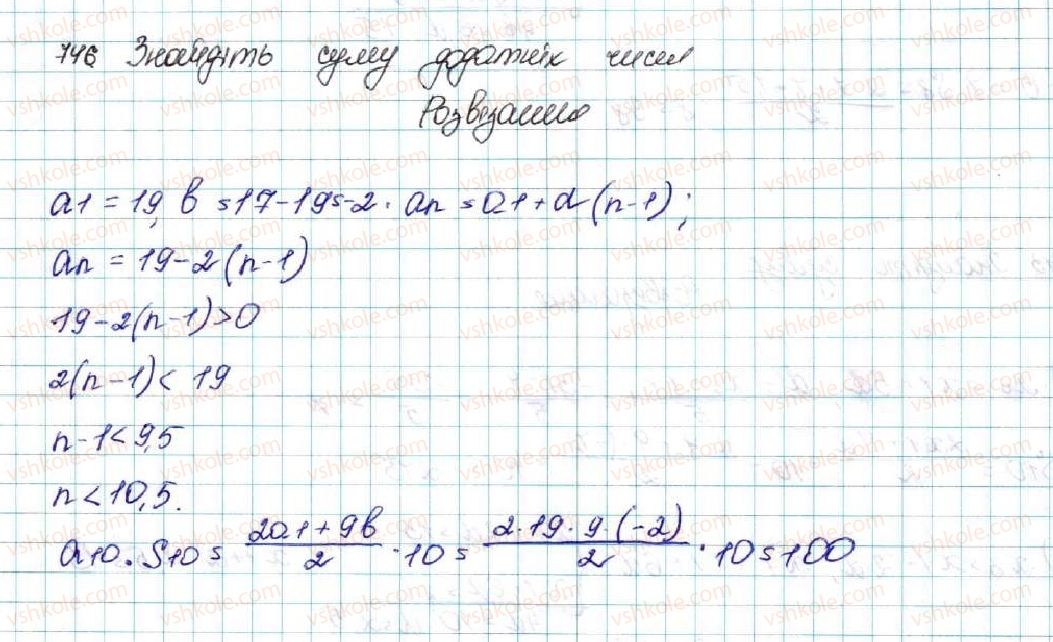 746 Знайдіть суму додатніх чисел
Розвязання
a1 = 19, в = 17-19 = -2. an = a1 + d(n-1);
an = 19-2(n-1)
19-2(n-1)>0
2(n-1)< 19
n-1<9,5
n<10,5.
a10. S10 = 2a1+9в/2 · 10 = 2·19·9·(-2)/2 · 10 = 100